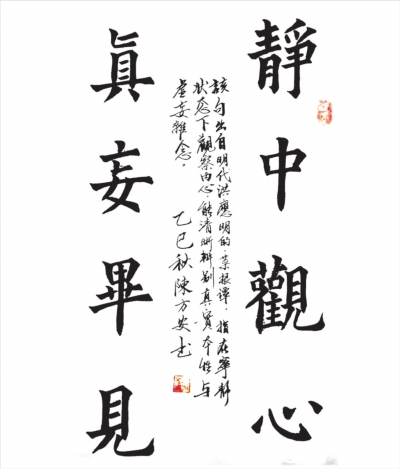 靜中觀心
真妄畢見
該句出自明代洪應明的《菜根譚》，指在寧靜
狀态下觀察内心，能清晰辨别真實本性与
虚妄雜念。
乙巳秋陳方安书